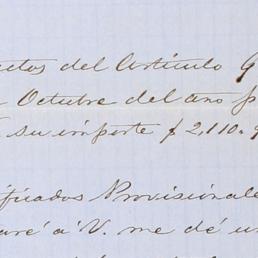 ectos del Artículo 9
Octubre del año p
su importe $ 2,110.
ificados Provisionale
aré á V. me dé un